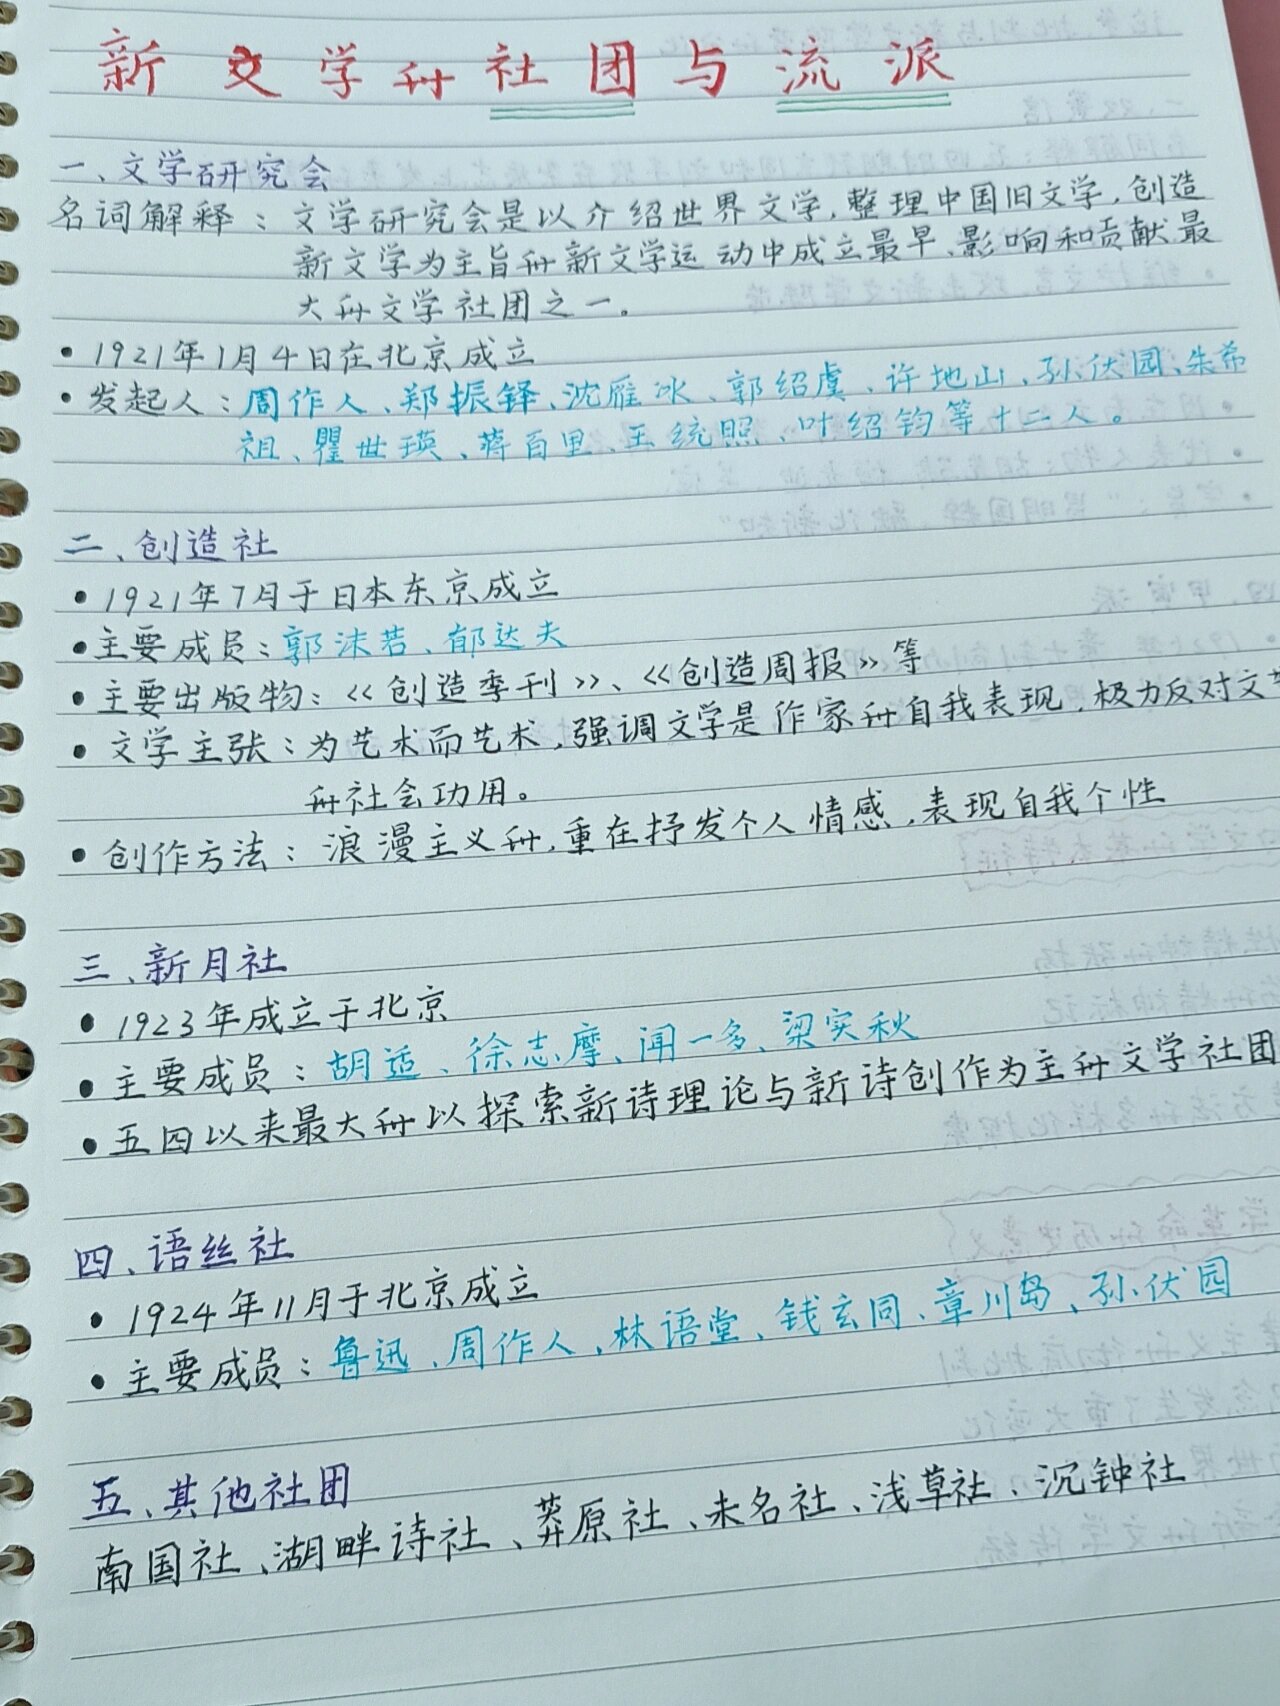 新文学的社团与流派
一、文学研究会
名词解释：文学研究会是以介绍世界文学，整理中国旧文学，创造
新文学为主旨的新文学运动中成立最早、影响和贡献最
大的文学社团之一。
• 1921年1月4日在北京成立
• 发起人：周作人、郑振铎、沈雁冰、郭绍虞、许地山、孙伏园、朱希
祖、瞿世瑛、蒋百里、王统照、叶绍钧等十二人。
二、创造社
• 1921年7月于日本东京成立
• 主要成员：郭沫若、郁达夫
• 主要出版物：《创造季刊》、《创造周报》等
• 文学主张：为艺术而艺术，强调文学是作家的自我表现，极力反对文艺
的社会功用。
• 创作方法：浪漫主义的，重在抒发个人情感，表现自我个性
三、新月社
• 1923年成立于北京
• 主要成员：胡适、徐志摩、闻一多、梁实秋
• 五四以来最大的以探索新诗理论与新诗创作为主的文学社团
四、语丝社
• 1924年11月于北京成立
• 主要成员：鲁迅、周作人、林语堂、钱玄同、章川岛、孙伏园
五、其他社团
南国社、湖畔诗社、莽原社、未名社、浅草社、沉钟社